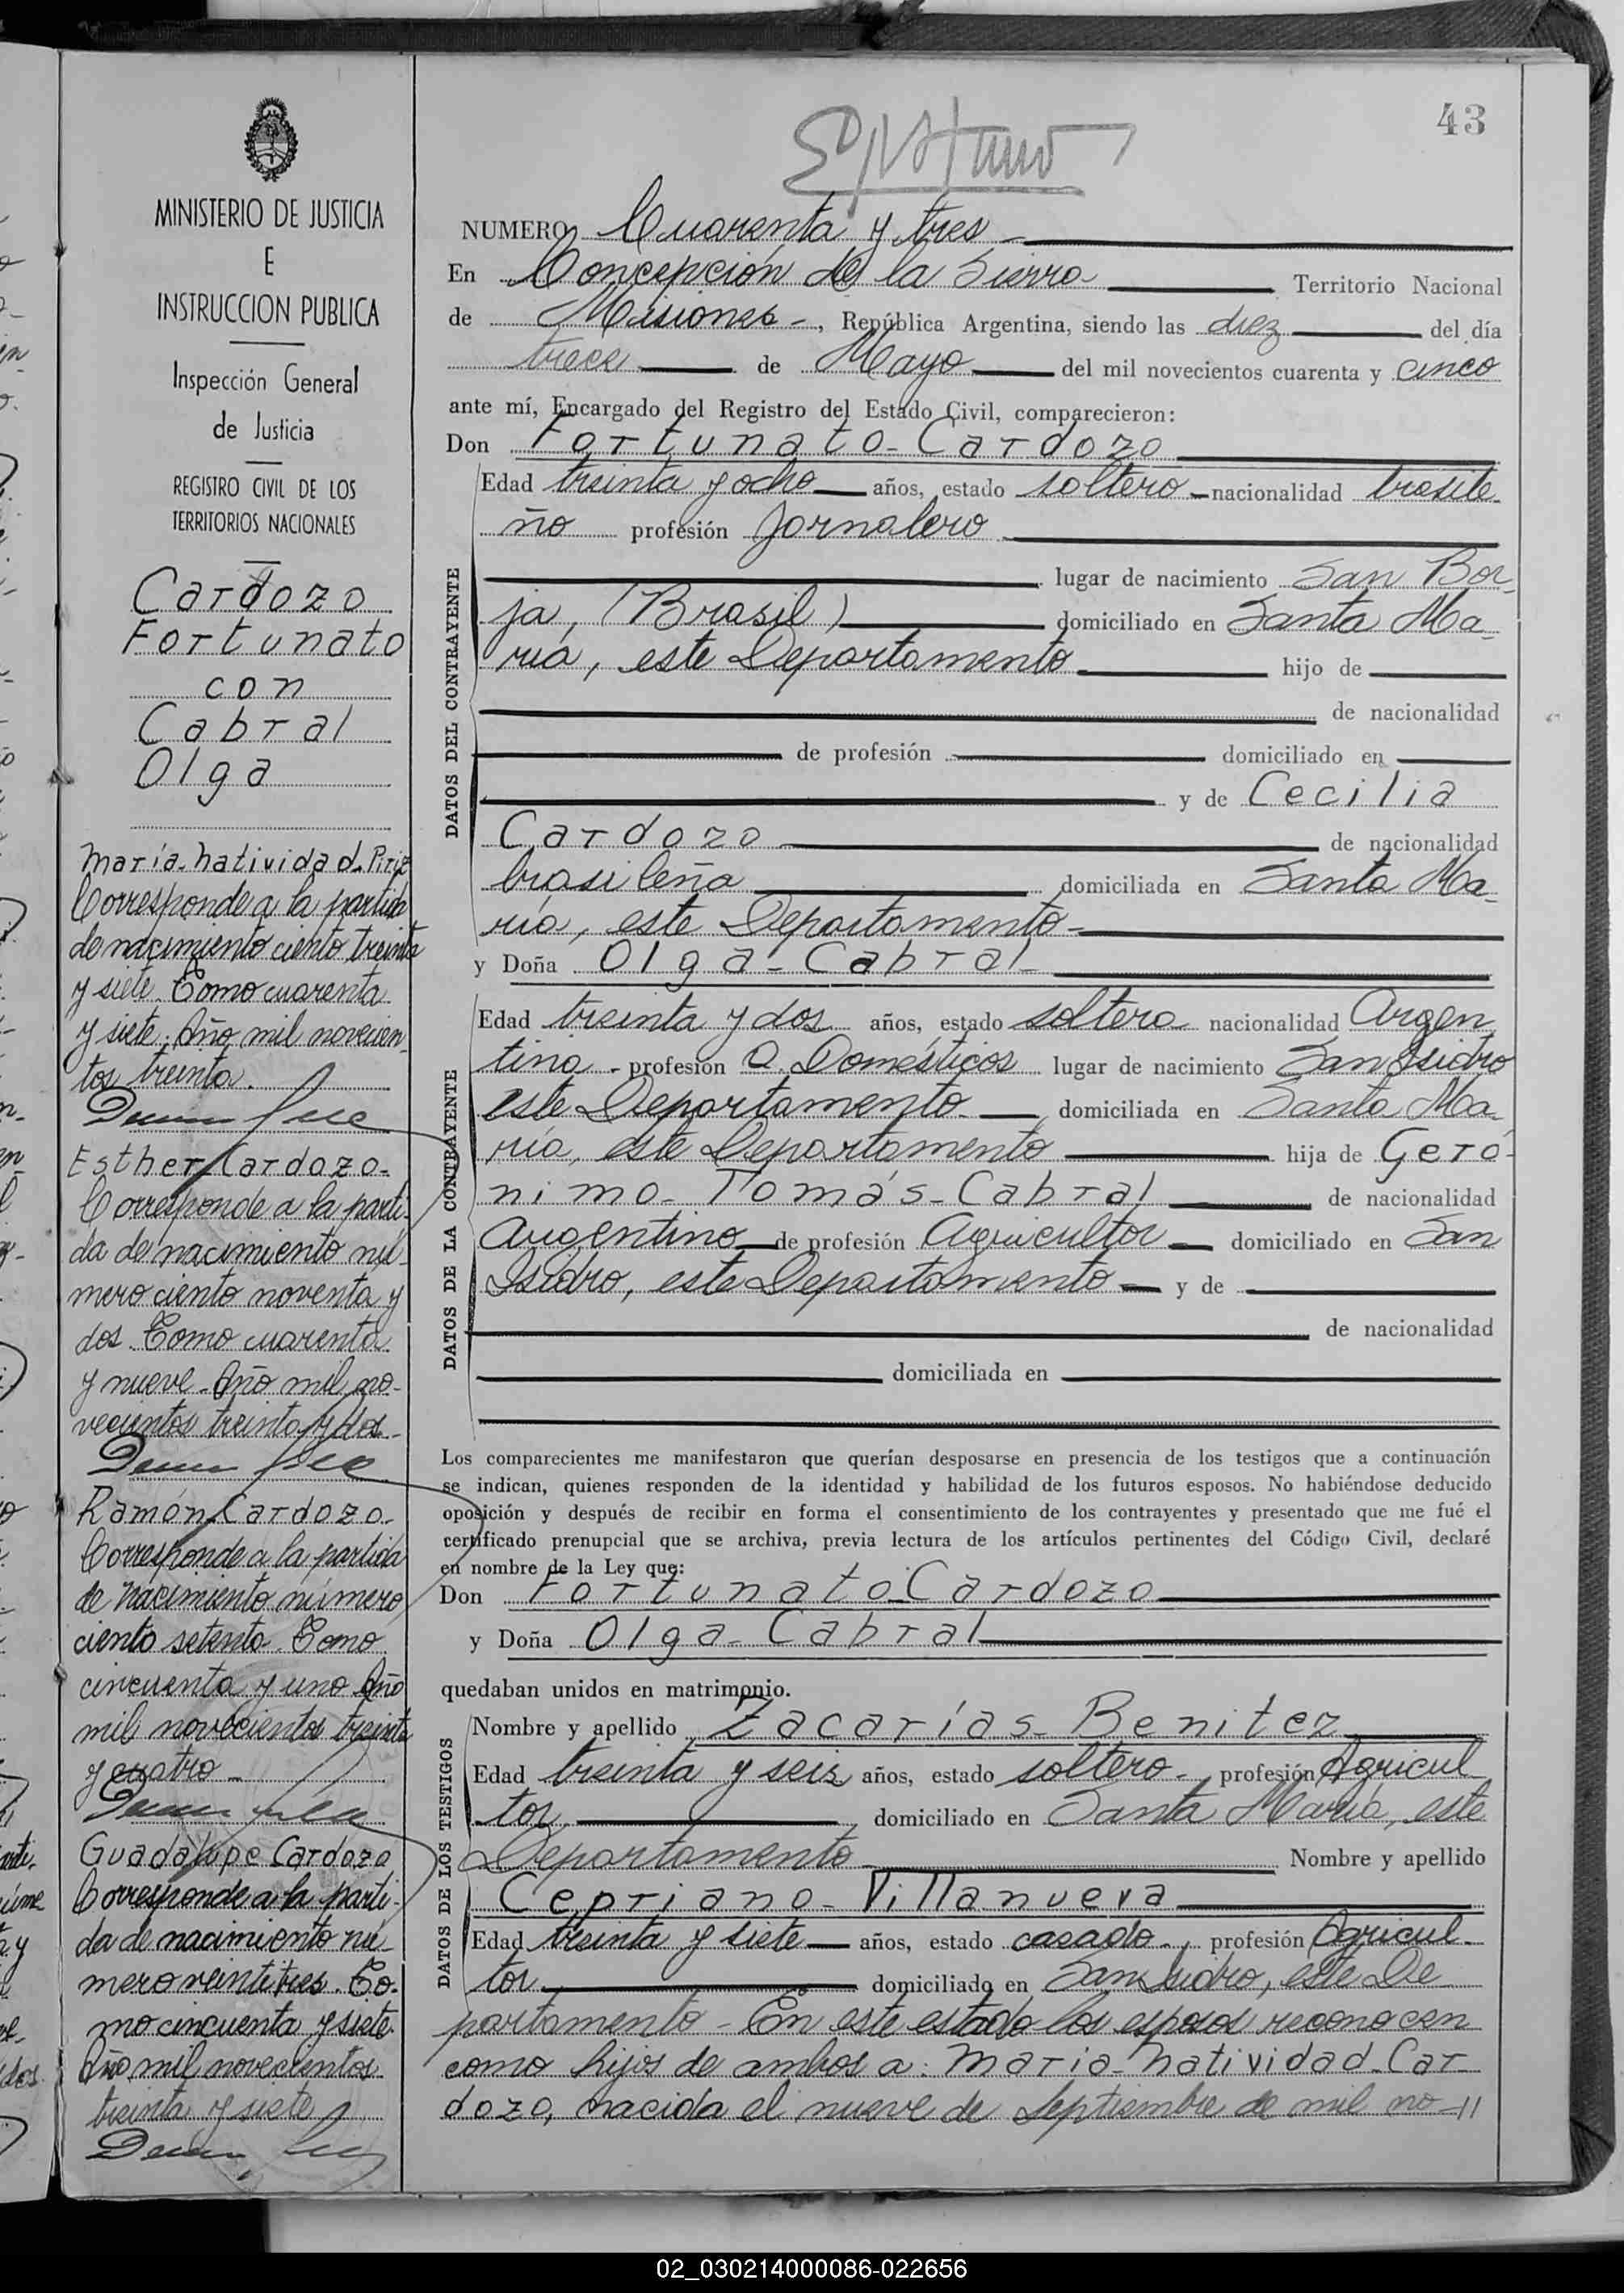 43
MINISTERIO DE JUSTICIA
E
INSTRUCCION PUBLICA
Inspección General
de Justicia
REGISTRO CIVIL DE LOS
TERRITORIOS NACIONALES
Cardozo
Fortunato
con
Cabral
Olga
María-Natividad-Piriz
Corresponde a la partida
de nacimiento ciento treinta
y siete. Tomo cuarenta
y siete. Año mil novecien
tos treinta.
Esther Cardozo-
Corresponde a la parti-
da de nacimiento nú-
mero ciento noventa y
dos. Tomo cuarenta
y nueve. Año mil no-
vecientos treinta y dos-
Ramón Cardozo-
Corresponde a la partida
de nacimiento número
ciento setenta. Tomo
cincuenta y uno Año
mil novecientos treinta
y cuatro-
Guadalupe Cardozo
Corresponde a la parti-
da de nacimiento nú-
mero veintitres. To-
mo cincuenta y siete.
Año mil novecientos
treinta y siete
NUMERO Cuarenta y tres-
En Concepción de la Sierra Territorio Nacional
de Misiones-, República Argentina, siendo las diez del día
trece de Mayo del mil novecientos cuarenta y cinco
ante mí, Encargado del Registro del Estado Civil, comparecieron:
Don Fortunato-Cardozo
DATOS DEL CONTRAYENTE
Edad treinta y ocho años, estado soltero-nacionalidad brasile-
ño profesión Jornalero
lugar de nacimiento San Bor-
ja, (Brasil) domiciliado en Santa Ma-
ría, este Departamento hijo de
de nacionalidad
de profesión domiciliado en
y de Cecilia
Cardozo de nacionalidad
brasileña domiciliada en Santa Ma-
ría, este Departamento-
y Doña Olga-Cabral
DATOS DE LA CONTRAYENTE
Edad treinta y dos años, estado soltera nacionalidad Argen
tina- profesión Q. Domésticos lugar de nacimiento San Isidro
este Departamento- domiciliada en Santa Ma-
ría, este Departamento hija de Geró-
nimo-Tomás-Cabral de nacionalidad
Argentino de profesión Agricultor domiciliado en San
Isidro, este Departamento y de
de nacionalidad
domiciliada en
Los comparecientes me manifestaron que querían desposarse en presencia de los testigos que a continuación
se indican, quienes responden de la identidad y habilidad de los futuros esposos. No habiéndose deducido
oposición y después de recibir en forma el consentimiento de los contrayentes y presentado que me fué el
certificado prenupcial que se archiva, previa lectura de los artículos pertinentes del Código Civil, declaré
en nombre de la Ley que:
Don Fortunato-Cardozo
y Doña Olga-Cabral
quedaban unidos en matrimonio.
DATOS DE LOS TESTIGOS
Nombre y apellido Zacarías-Benitez
Edad treinta y seis años, estado soltero-, profesión Agricul-
tor, domiciliado en Santa María, este
Departamento Nombre y apellido
Cepriano-Villanueva
Edad treinta y siete años, estado casado-, profesión Agricul-
tor domiciliado en San Isidro, este De
partamento-En este estado los esposos reconocen
como hijos de ambos a: María-Natividad-Car-
dozo, nacida el nueve de Septiembre de mil no-//
02_030214000086-022656